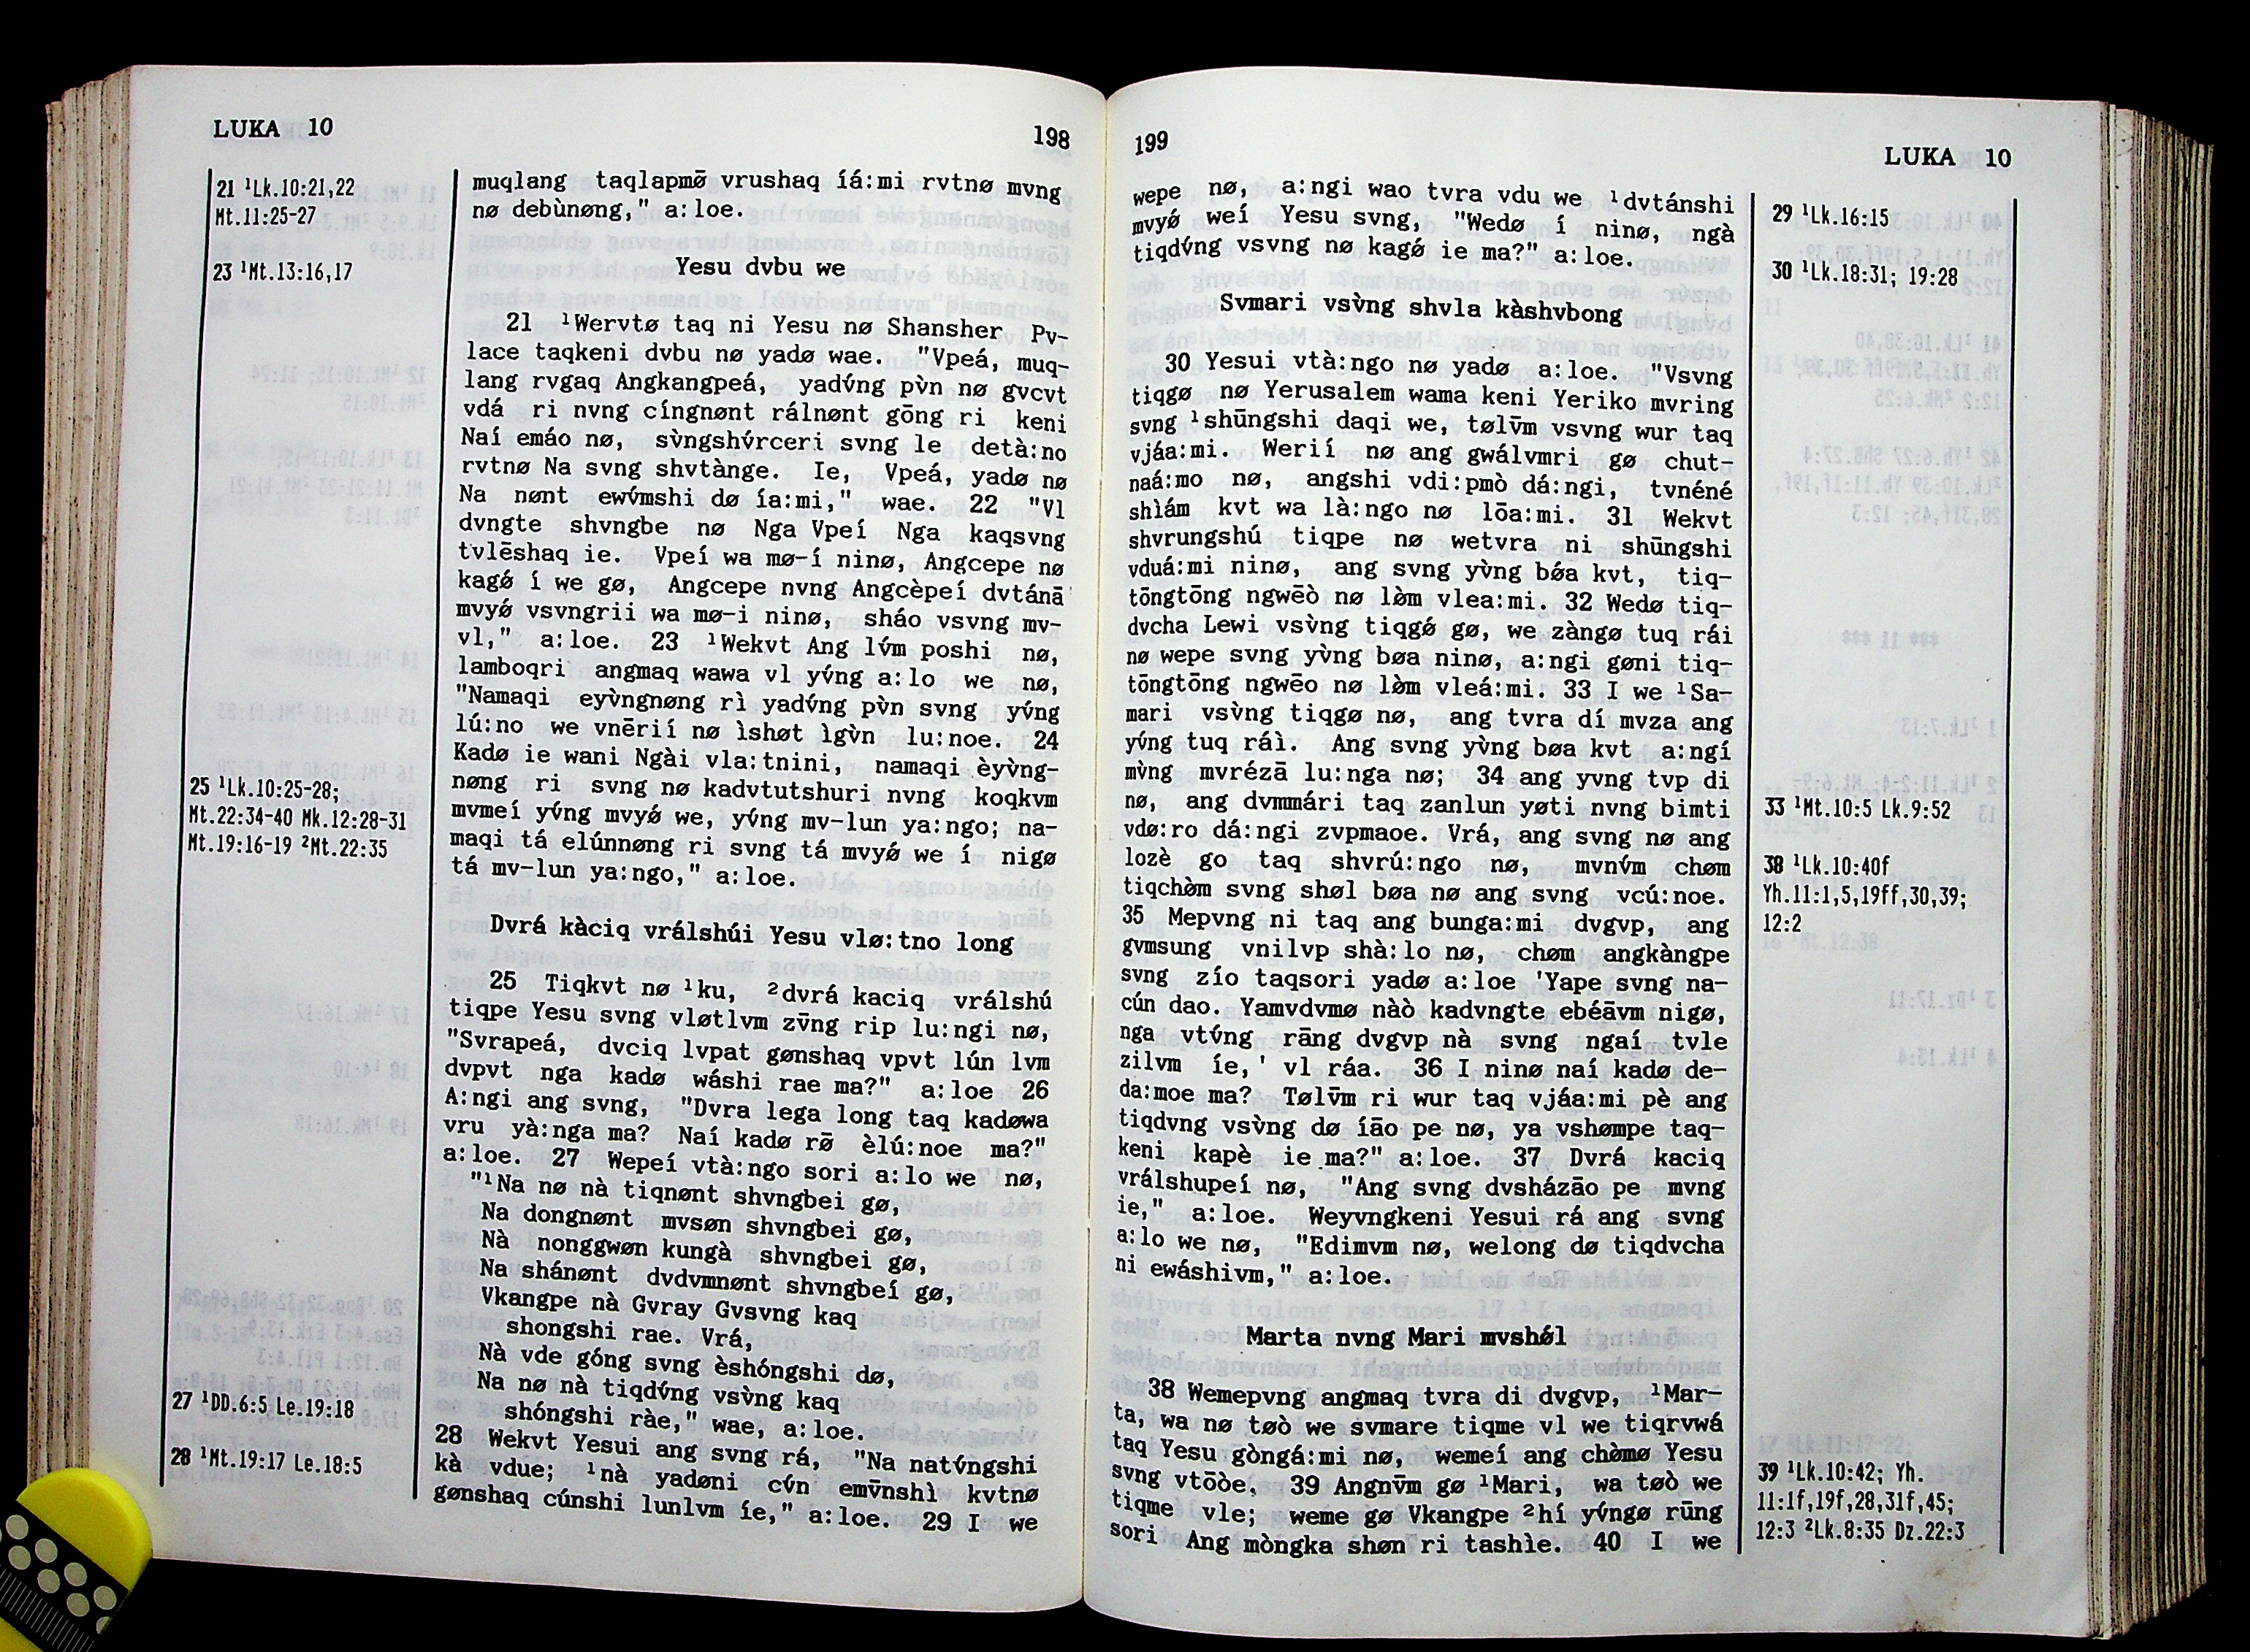 LUKA 10
198
21 ¹Lk.10:21,22
Mt.11:25-27
23 ¹Mt.13:16,17
25 ¹Lk.10:25-28;
Mt.22:34-40 Mk.12:28-31
Mt.19:16-19 ²Mt.22:35
27 ¹DD.6:5 Le:19:18
28 ¹Mt.19:17 Le.18:5
muqlang taqlapmø̄ vrushaq íá:mi rvtnø mvng
nø debùnøng," a:loe.
Yesu dvbu we
21 ¹Wervtø taq ni Yesu nø Shansher Pv-
lace taqkeni dvbu nø yadø wae. "Vpeá, muq-
lang rvgaq Angkangpeá, yadv́ng pv̀n nø gvcvt
vdá ri nvng cíngnønt rálnønt gōng ri keni
Naí emáo nø, sv̀ngshv́rceri svng le detà:no
rvtnø Na svng shvtànge. Ie, Vpeá, yadø nø
Na nønt ewv́mshi dø ía:mi," wae. 22 "Vl
dvngte shvngbe nø Nga Vpeí Nga kaqsvng
tvlēshaq ie. Vpeí wa mø-í ninø, Angcepe nø
kagǿ í we gø, Angcepe nvng Angcèpeí dvtánā
mvyǿ vsvngrii wa mø-i ninø, sháo vsvng mv-
vl," a:loe. 23 ¹Wekvt Ang lv́m poshi nø,
lamboqri angmaq wawa vl yv́ng a:lo we nø,
"Namaqi eyv̀ngnøng rì yadv́ng pv̀n svng yv́ng
lú:no we vnērií nø ìshøt ìgv̀n lu:noe. 24
Kadø ie wani Ngài vla:tnini, namaqi èyv̀ng-
nøng ri svng nø kadvtutshuri nvng koqkvm
mvmeí yv́ng mvyǿ we, yv́ng mv-lun ya:ngo; na-
maqi tá elúnnøng ri svng tá mvyǿ we í nigø
tá mv-lun ya:ngo," a:loe.
Dvrá kàciq vrálshúi Yesu vlø:tno long
25 Tiqkvt nø ¹ku, ²dvrá kaciq vrálshú
tiqpe Yesu svng vløtlvm zv̄ng rip lu:ngi nø,
"Svrapeá, dvciq lvpat gønshaq vpvt lún lvm
dvpvt nga kadø wáshi rae ma?" a:loe 26
A:ngi ang svng, "Dvra lega long taq kadøwa
vru yà:nga ma? Naí kadø rø̄ èlú:noe ma?"
a:loe. 27 Wepeí vtà:ngo sori a:lo we nø,
"¹Na nø nà tiqnønt shvngbei gø,
Na dongnønt mvsøn shvngbei gø,
Nà nonggwøn kungà shvngbei gø,
Na shánønt dvdvmnønt shvngbeí gø,
Vkangpe nà Gvray Gvsvng kaq
shongshi rae. Vrá,
Nà vde góng svng èshóngshi dø,
Na nø nà tiqdv́ng vsv̀ng kaq
shóngshi ràe," wae, a:loe.
28 Wekvt Yesui ang svng rá, "Na natv́ngshi
kà vdue; ¹nà yadøni cv́n emv̄nshì kvtnø
gønshaq cúnshi lunlvm íe," a:loe. 29 I we
199
LUKA 10
wepe nø, a:ngi wao tvra vdu we ¹dvtánshi
mvyǿ weí Yesu svng, "Wedø í ninø, ngà
tiqdv́ng vsvng nø kagǿ ie ma?" a:loe.
Svmari vsv̀ng shvla kàshvbong
30 Yesui vtà:ngo nø yadø a:loe. "Vsvng
tiqgø nø Yerusalem wama keni Yeriko mvring
svng ¹shūngshi daqi we, tølv̄m vsvng wur taq
vjáa:mi. Werií nø ang gwálvmri gø chut-
naá:mo nø, angshi vdi:pmò dá:ngi, tvnéné
shìám kvt wa là:ngo nø lōa:mi. 31 Wekvt
shvrungshú tiqpe nø wetvra ni shūngshi
vduá:mi ninø, ang svng yv̀ng bǿa kvt, tiq-
tōngtōng ngwēò nø lø̀m vlea:mi. 32 Wedø tiq-
dvcha Lewi vsv̀ng tiqgǿ gø, we zàngø tuq rái
nø wepe svng yv̀ng bøa ninø, a:ngi gøni tiq-
tōngtōng ngwēo nø lø̀m vleá:mi. 33 I we ¹Sa-
mari vsv̀ng tiqgø nø, ang tvra dí mvza ang
yv́ng tuq ráì. Ang svng yv̀ng bøa kvt a:ngí
mv̀ng mvrézā lu:nga nø;" 34 ang yvng tvp di
nø, ang dvmmári taq zanlun yøti nvng bimti
vdø:ro dá:ngi zvpmaoe. Vrá, ang svng nø ang
lozè go taq shvrú:ngo nø, mvnv́m chøm
tiqchø̀m svng shøl bøa nø ang svng vcú:noe.
35 Mepvng ni taq ang bunga:mi dvgvp, ang
gvmsung vnilvp shà:lo nø, chøm angkàngpe
svng zío taqsori yadø a:loe 'Yape svng na-
cún dao. Yamvdvmø nàò kadvngte ebéāvm nigø,
nga vtv́ng rāng dvgvp nà svng ngaí tvle
zilvm íe,' vl ráa. 36 I ninø naí kadø de-
da:moe ma? Tølv̄m ri wur taq vjáa:mi pè ang
tiqdvng vsv̀ng dø íāo pe nø, ya vshømpe taq-
keni kapè ie ma?" a:loe. 37 Dvrá kaciq
vrálshupeí nø, "Ang svng dvsházāo pe mvng
ie," a:loe. Weyvngkeni Yesui rá ang svng
a:lo we nø, "Edimvm nø, welong dø tiqdvcha
ni ewáshivm," a:loe.
Marta nvng Mari mvshǿl
38 Wemepvng angmaq tvra di dvgvp, ¹Mar-
ta, wa nø tøò we svmare tiqme vl we tiqrvwá
taq Yesu gòngá:mi nø, wemeí ang chø̀mø Yesu
svng vtōòe. 39 Angnv̄m gø ¹Mari, wa tøò we
tiqme vle; weme gø Vkangpe ²hí yv́ngø rūng
sori Ang mòngka shøn ri tashìe. 40 I we
29 ¹Lk.16:15
30 ¹Lk.18:31; 19:28
33 ¹Mt.10:5 Lk.9:52
38 ¹Lk.10:40f
Yh.11:1,5,19ff,30,39;
12:2
39 ¹Lk.10:42; Yh.
11:1f,19f,28,31f,45;
12:3 ²Lk.8:35 Dz.22:3